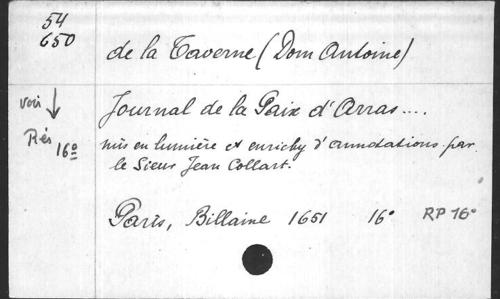 54
650
de la Taverne (Dom Antoine)
voir
Rés
16º
Journal de la Paix d'Arras....
mis en lumière et enrichy d'annotations par
le Sieur Jean Collart.
Paris, Billaine 1651 16º RP 16º